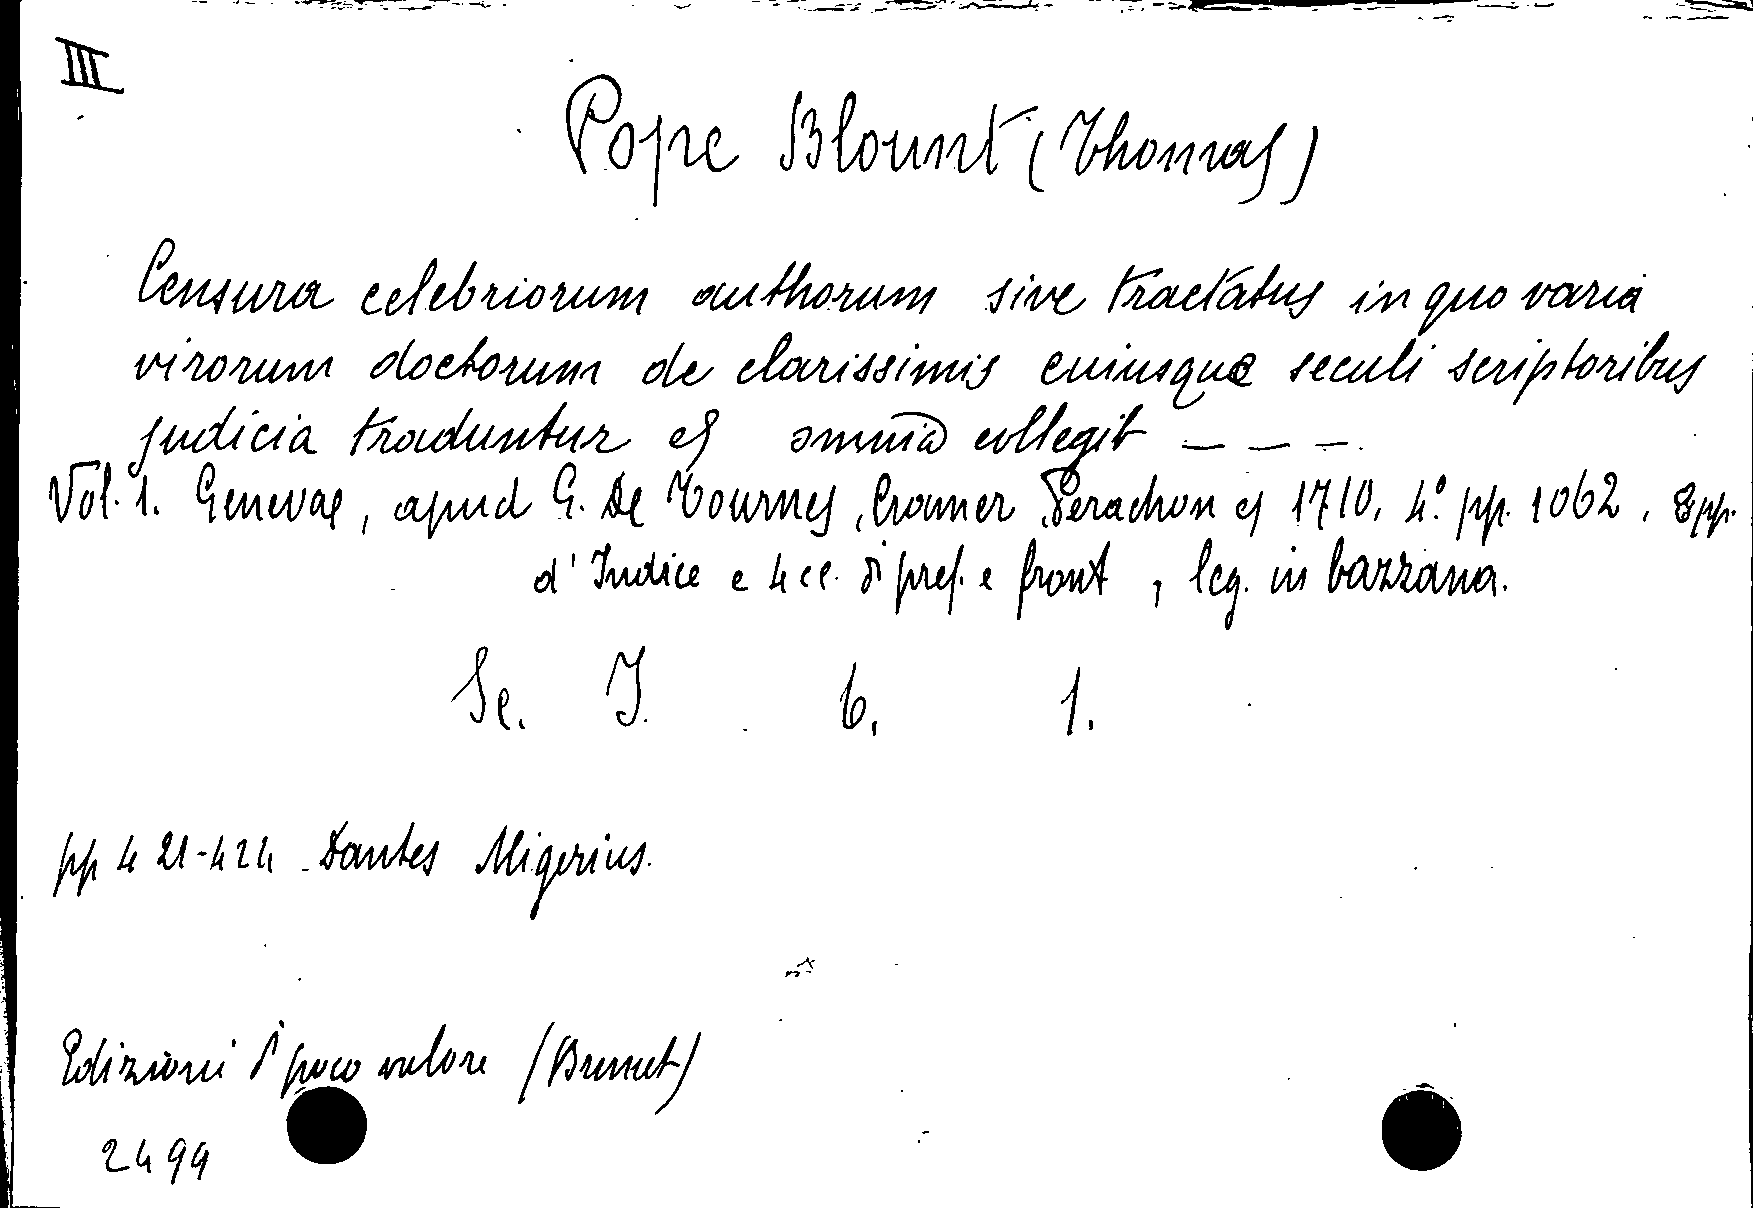 III
Pope Blount (Thomas)
Censura celebriorum authorum sive tractatus in quo varia
virorum doctorum de clarissimis cuiusque seculi scriptoribus
judicia traduntur et omnia collegit _ _ _ .
Vol. 1. Genevae, apud G. De Tournes, Cramer, Perachon et 1710, 4.° pp. 1062, 8 pp.
d'Indice e 4 cc. di pref. e front, leg. in bazzana.
Sc. I. 6. 1.
pp 421-424 - Dantes Aligerius.
Edizioni di poco valore (Brunet)
2494